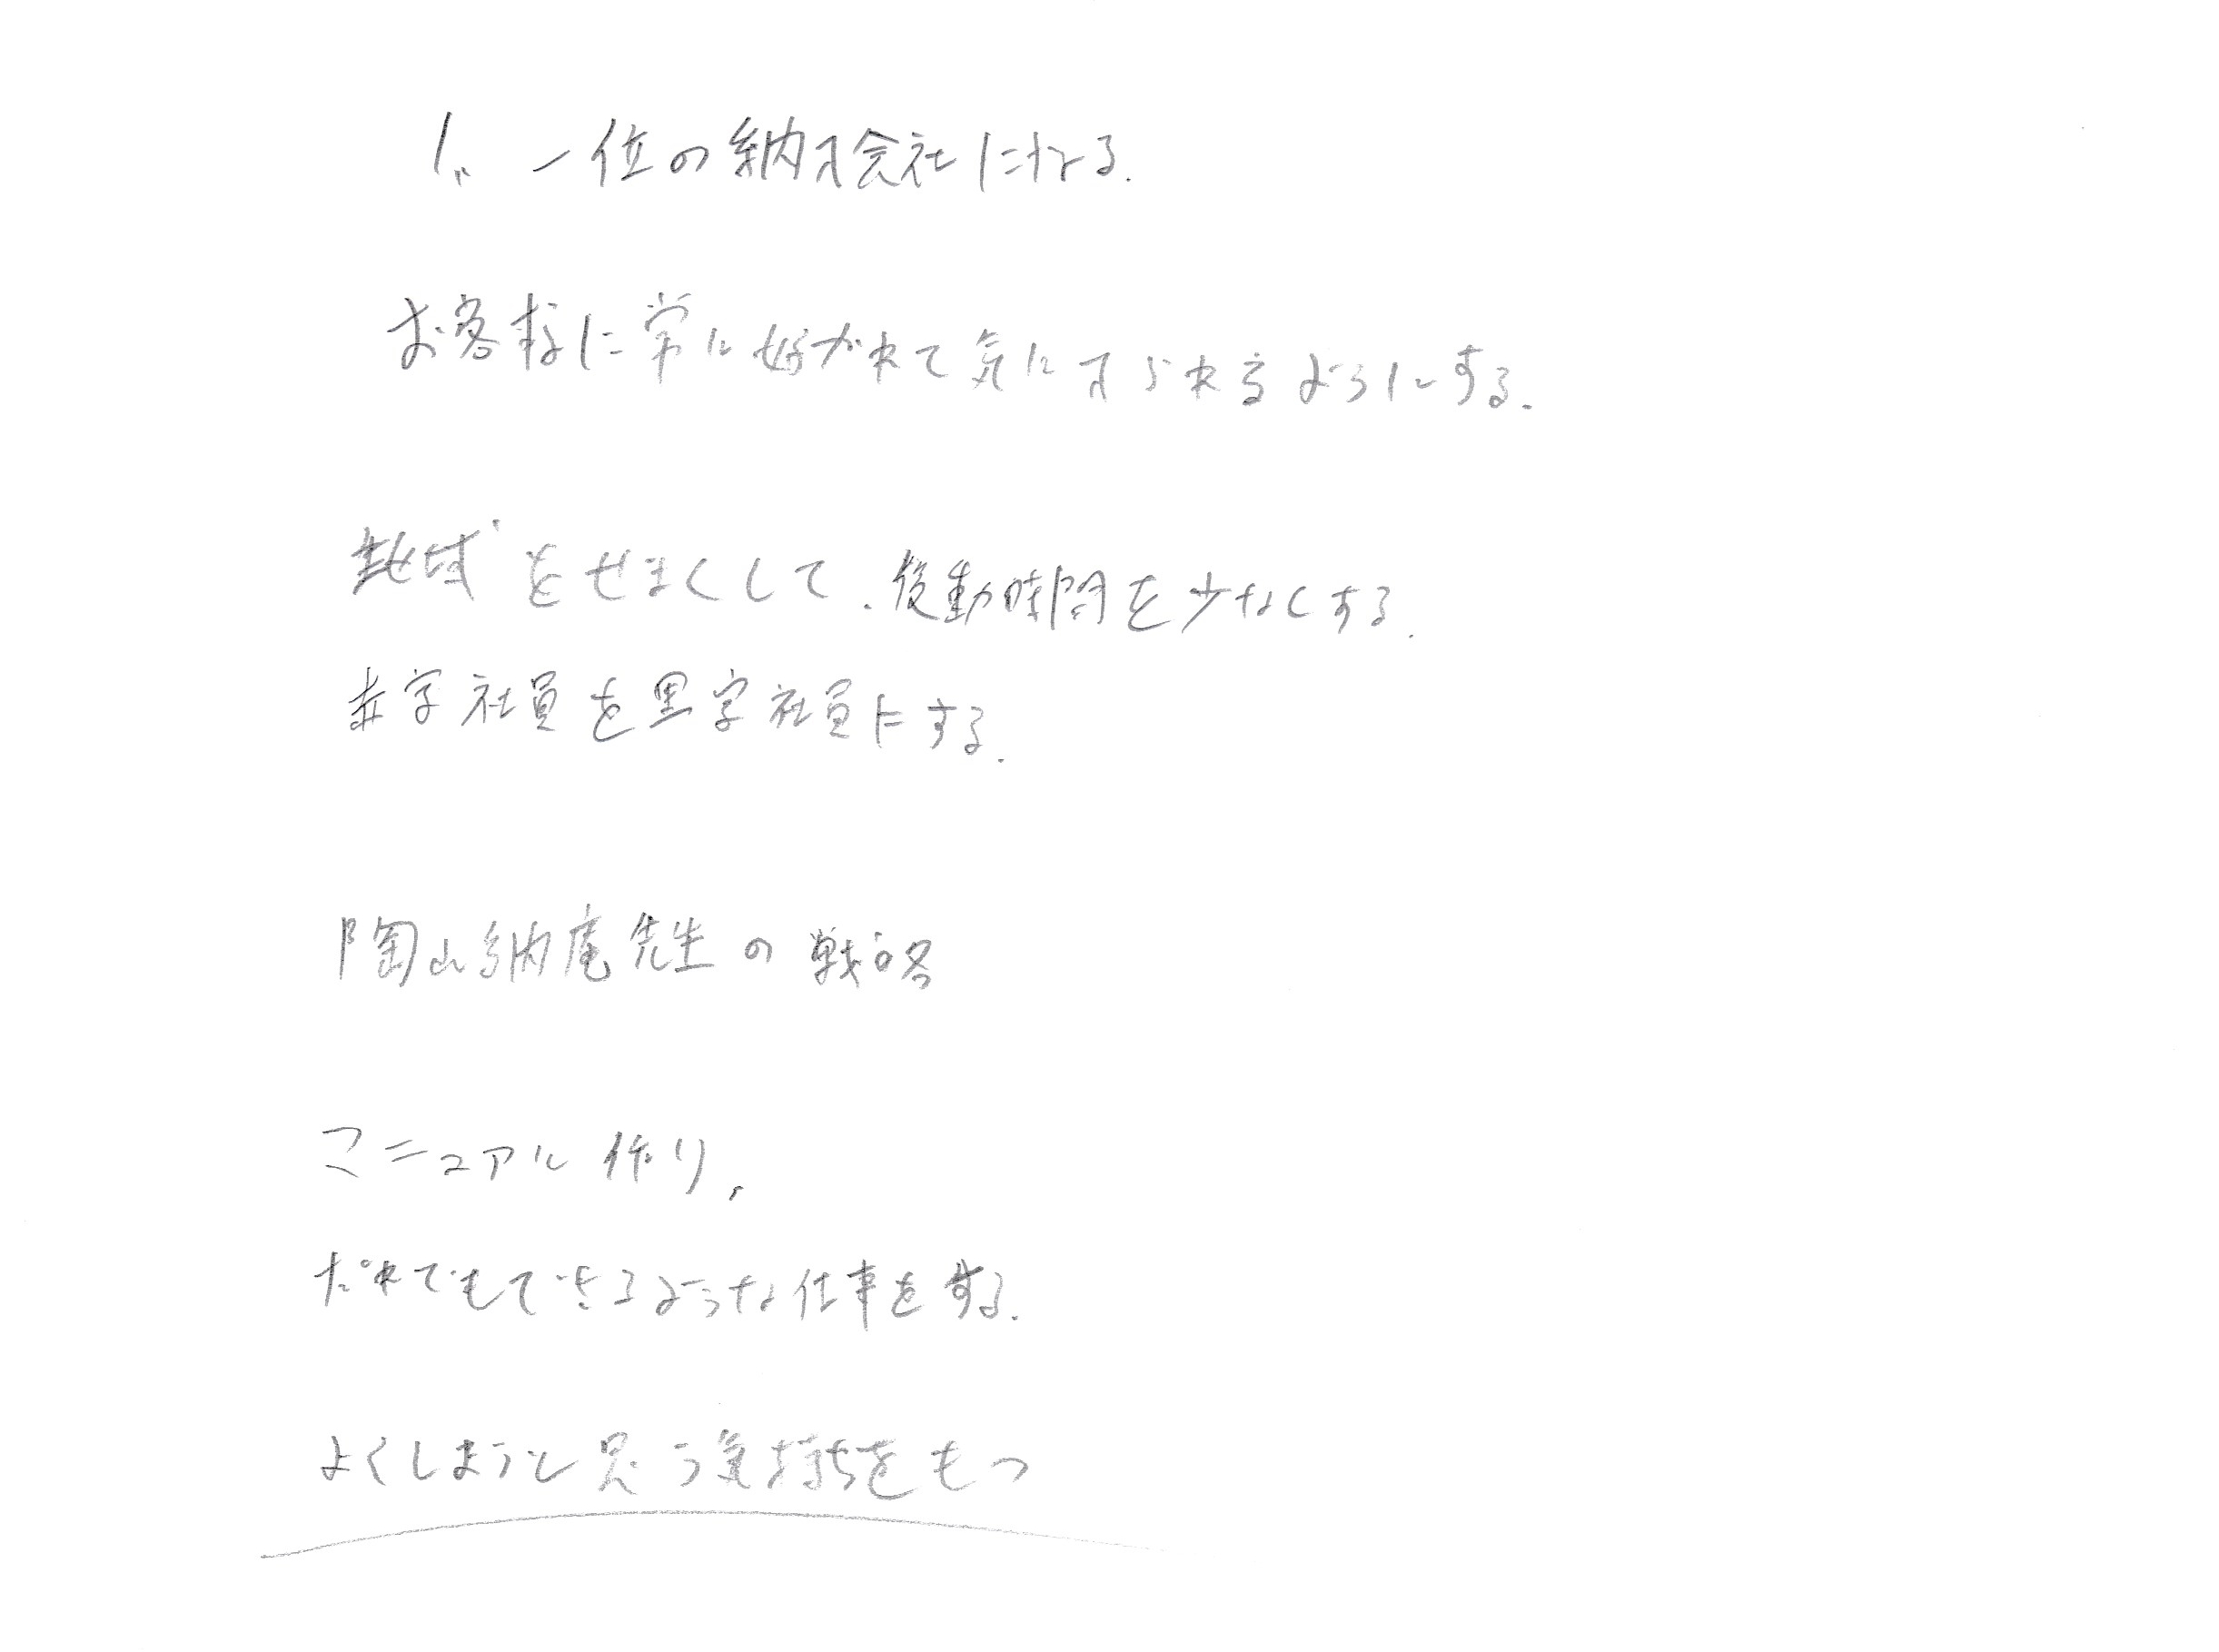 1. 一位の納才会社になる.
お客様に常に好かれて気に入られるようにする.
地域をせまくして、後動時間を少なくする.
赤字社員を黒字社員にする.
陶山納庵先生の戦略
マニュアル作り,
だれでもできるような仕事をする.
よくしようと思う気持ちをもつ